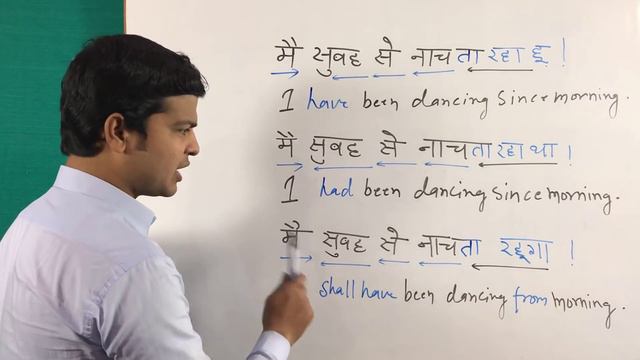 मै सुवह से नाचता रहा हू !
I have been dancing since morning.
मै सुवह से नाचता रहा था !
I had been dancing since morning.
मै सुवह से नाचता रहूगा !
shall have been dancing from morning.